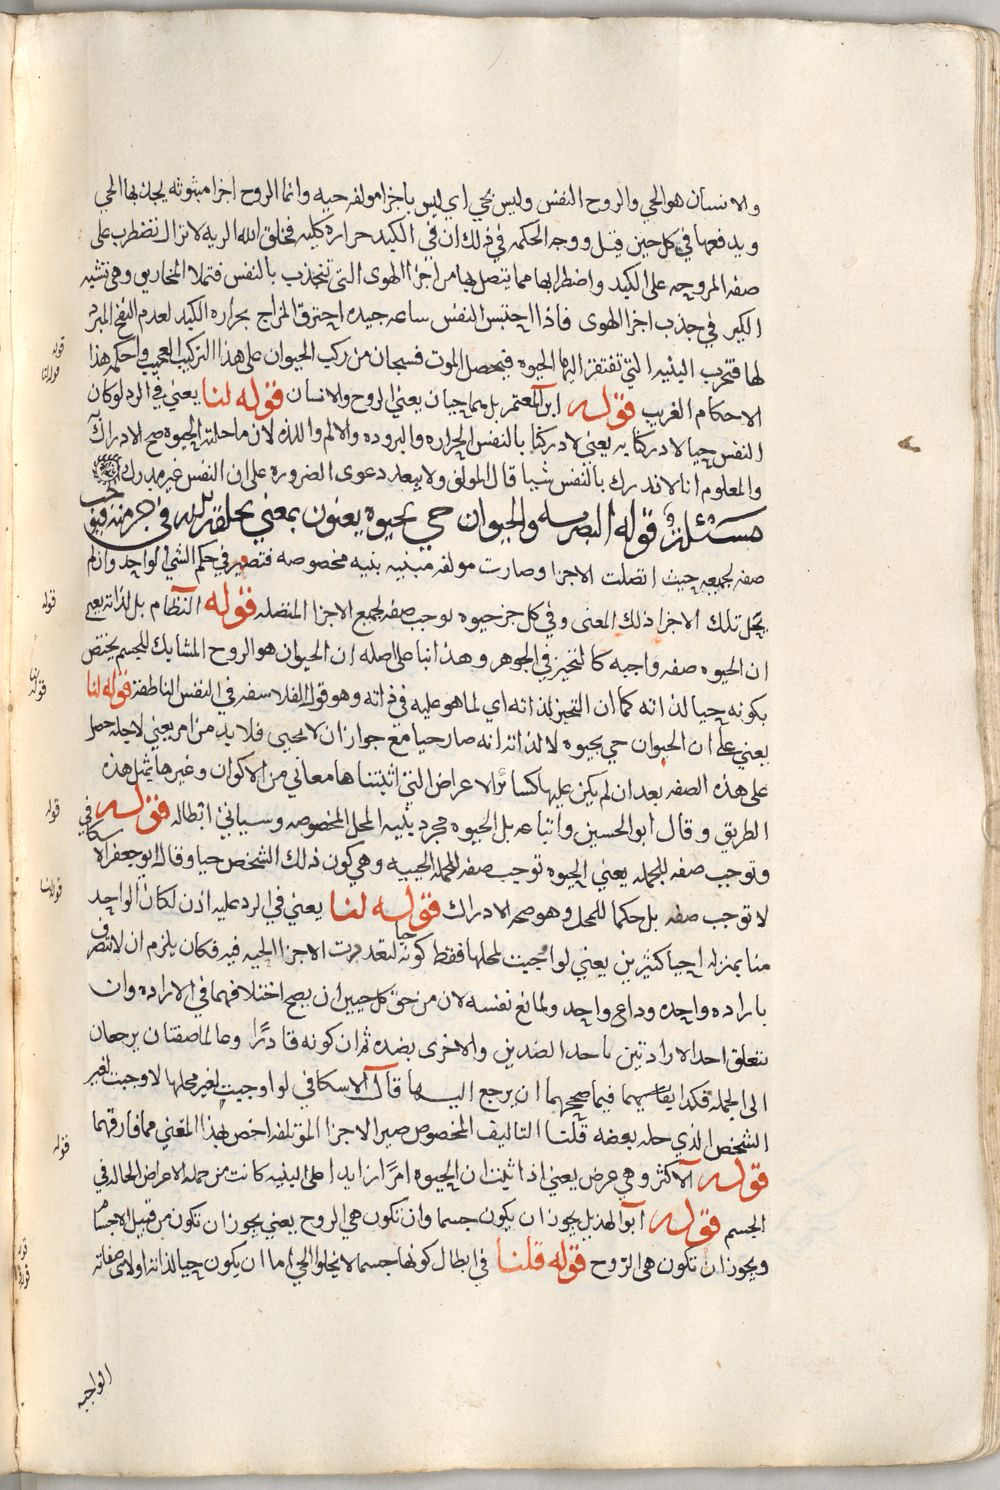 والانسان هو الحي والروح النفس وليس بحي اي ليس باجزا مولفه حيه وانما الروح اجزا مبثوثه يجذبها الحي
ويدفعها في كل حين قيل ووجه الحكمه في ذلك ان في الكبد حراره كليه فخلق الله الريه لا تزال تضطرب على
صفه المروحه على الكبد واضطرابها مما يتصل بها من اجزا الهوى التي تنجذب بالنفس فتملا المخاريق وهي تشبه
الكير في جذب اجزا الهوى فاذا احتبس النفس ساعه جيده احترق المزاج بحراره الكبد لعدم النفخ المبرد
لها فتخرب البنيه التي تفتقر اليها الحيوه فيحصل الموت فسبحان من ركب الحيوان على هذا التركيب العجيب واحكمه هذا
الاحكام الغريب قوله ابن المعتمر بل هما حيان يعني الروح والانسان قوله لنا يعني في الرد لو كان
النفس حيا لادركنا به يعني لادركنا بالنفس الحراره والبروده والالم واللذه لان ما حلته الحيوه صح الادراك
والمعلوم انا لا ندرك بالنفس شيا قال المولف ولا يبعد دعوى الضروره على ان النفس غير مدرك
مسئلة قوله البصريه والحيوان حي بحيوه يعنون بمعني يحلقه الله في جز منه فيوجب
صفه لجميعه حيث اتصلت الاجزا وصارت مولفه مبنيه بنيه مخصوصه فتصير في حكم الشي الواحد وان لم
يحل تلك الاجزا ذلك المعنى وفي كل جز حيوه توجب صفه لجميع الاجزا المتصله قوله النظام بل لذاته يعني
ان الحيوه صفه واجبه كالتحيز في الجوهر وهذا بنا على اصله ان الحيوان هو الروح المشابك للجسم يختص
بكونه حيا لذاته كما ان التحيز لذاته اي لما هو عليه في ذاته وهو قول الفلاسفه في النفس الناطقه قوله لنا
يعني على ان الحيوان حي بحيوه لا لذاته انه صار حيا مع جواز ان لا يحيى فلا بد من امر يعني لاجله حصل
على هذه الصفه بعد ان لم يكن عليها كسائر الاعراض التي اثبتناها معاني من الاكوان وغيرها بمثل هذه
الطريق وقال ابو الحسين واتباعه بل الحيوه مجرد بنيه المحل المخصوصه وسياتي ابطاله قوله في
وتوجب صفه للجمله يعني الحيوه توجب صفه للجمله الحييه وهي كون ذلك الشخص حيا وقال ابو جعفر الاسكافي
لا توجب صفه بل حكما للمحل وهو صحه الادراك قوله لنا يعني في الرد عليه اذن لكان الواحد
منا بمنزله احيا كثيرين يعني لو اوجبت لمحلها فقط كونه حيا لتعددت الاجزا الحيه فيه فكان يلزم ان لا تتصرف
باراده واحده وداع واحد ولمانع نفسه لان من حق كل حيين ان يصح اختلافهما في الاراده وان
تتعلق احدا الارادتين باحد الضدين والاخرى بضده ثم ان كونه قادرا وعالما صفتان يرجعان
الى الجمله فكذا يقاسهما فيما صححهما ان يرجع اليها قال الاسكافي لو اوجبت لغير محلها لاوجبت لغير
الشخص الذي حله بعضه قلنا التاليف المخصوص صير الاجزا الموتلفه اخص بهذا المعنى مما فارقهما
قوله الاكثر وهي عرض يعني اذا ثبت ان الحيوه امر زايد على البنيه كانت من جمله الاعراض الحاله في
الجسم قوله ابو الهذيل يجوز ان يكون جسما وان تكون هي الروح يعني يجوز ان تكون من قبيل الاجسام
ويجوز ان تكون هي الروح قوله قلنا في ابطال كونها جسما لا يخلو الحي اما ان يكون حيا لذاته او لاي صفاته
الواجبه
قوله
قوله لنا
قوله
قوله لنا
قوله
قوله لنا
قوله
قوله
قوله